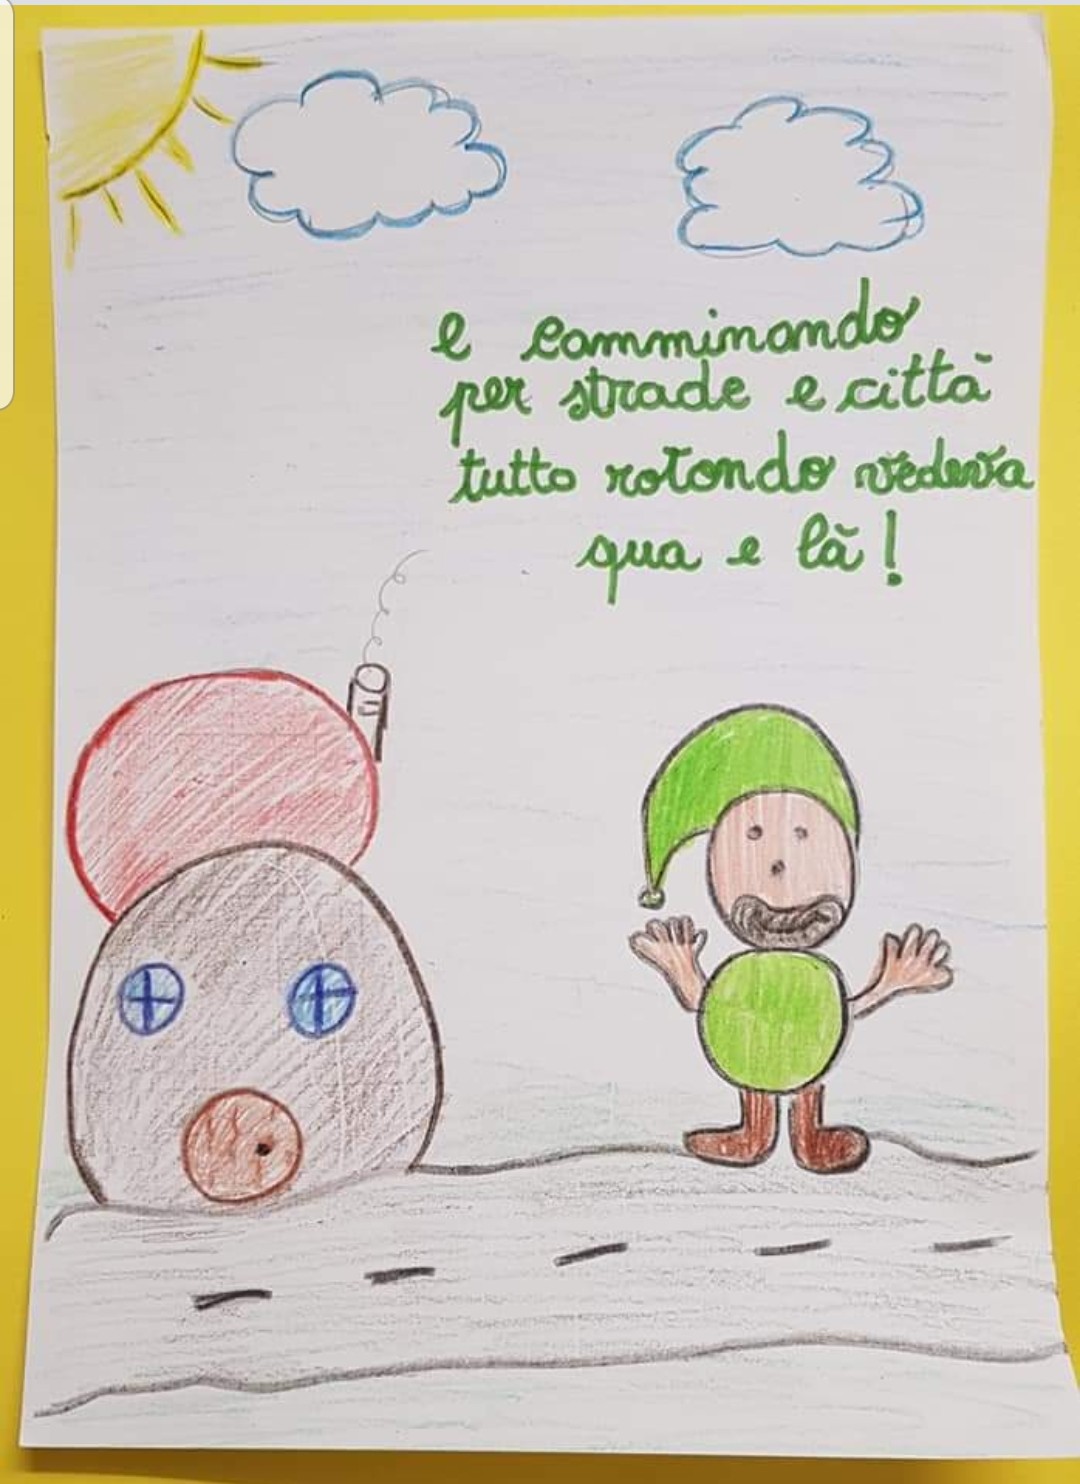 e camminando
per strade e città
tutto rotondo vedeva
qua e là!